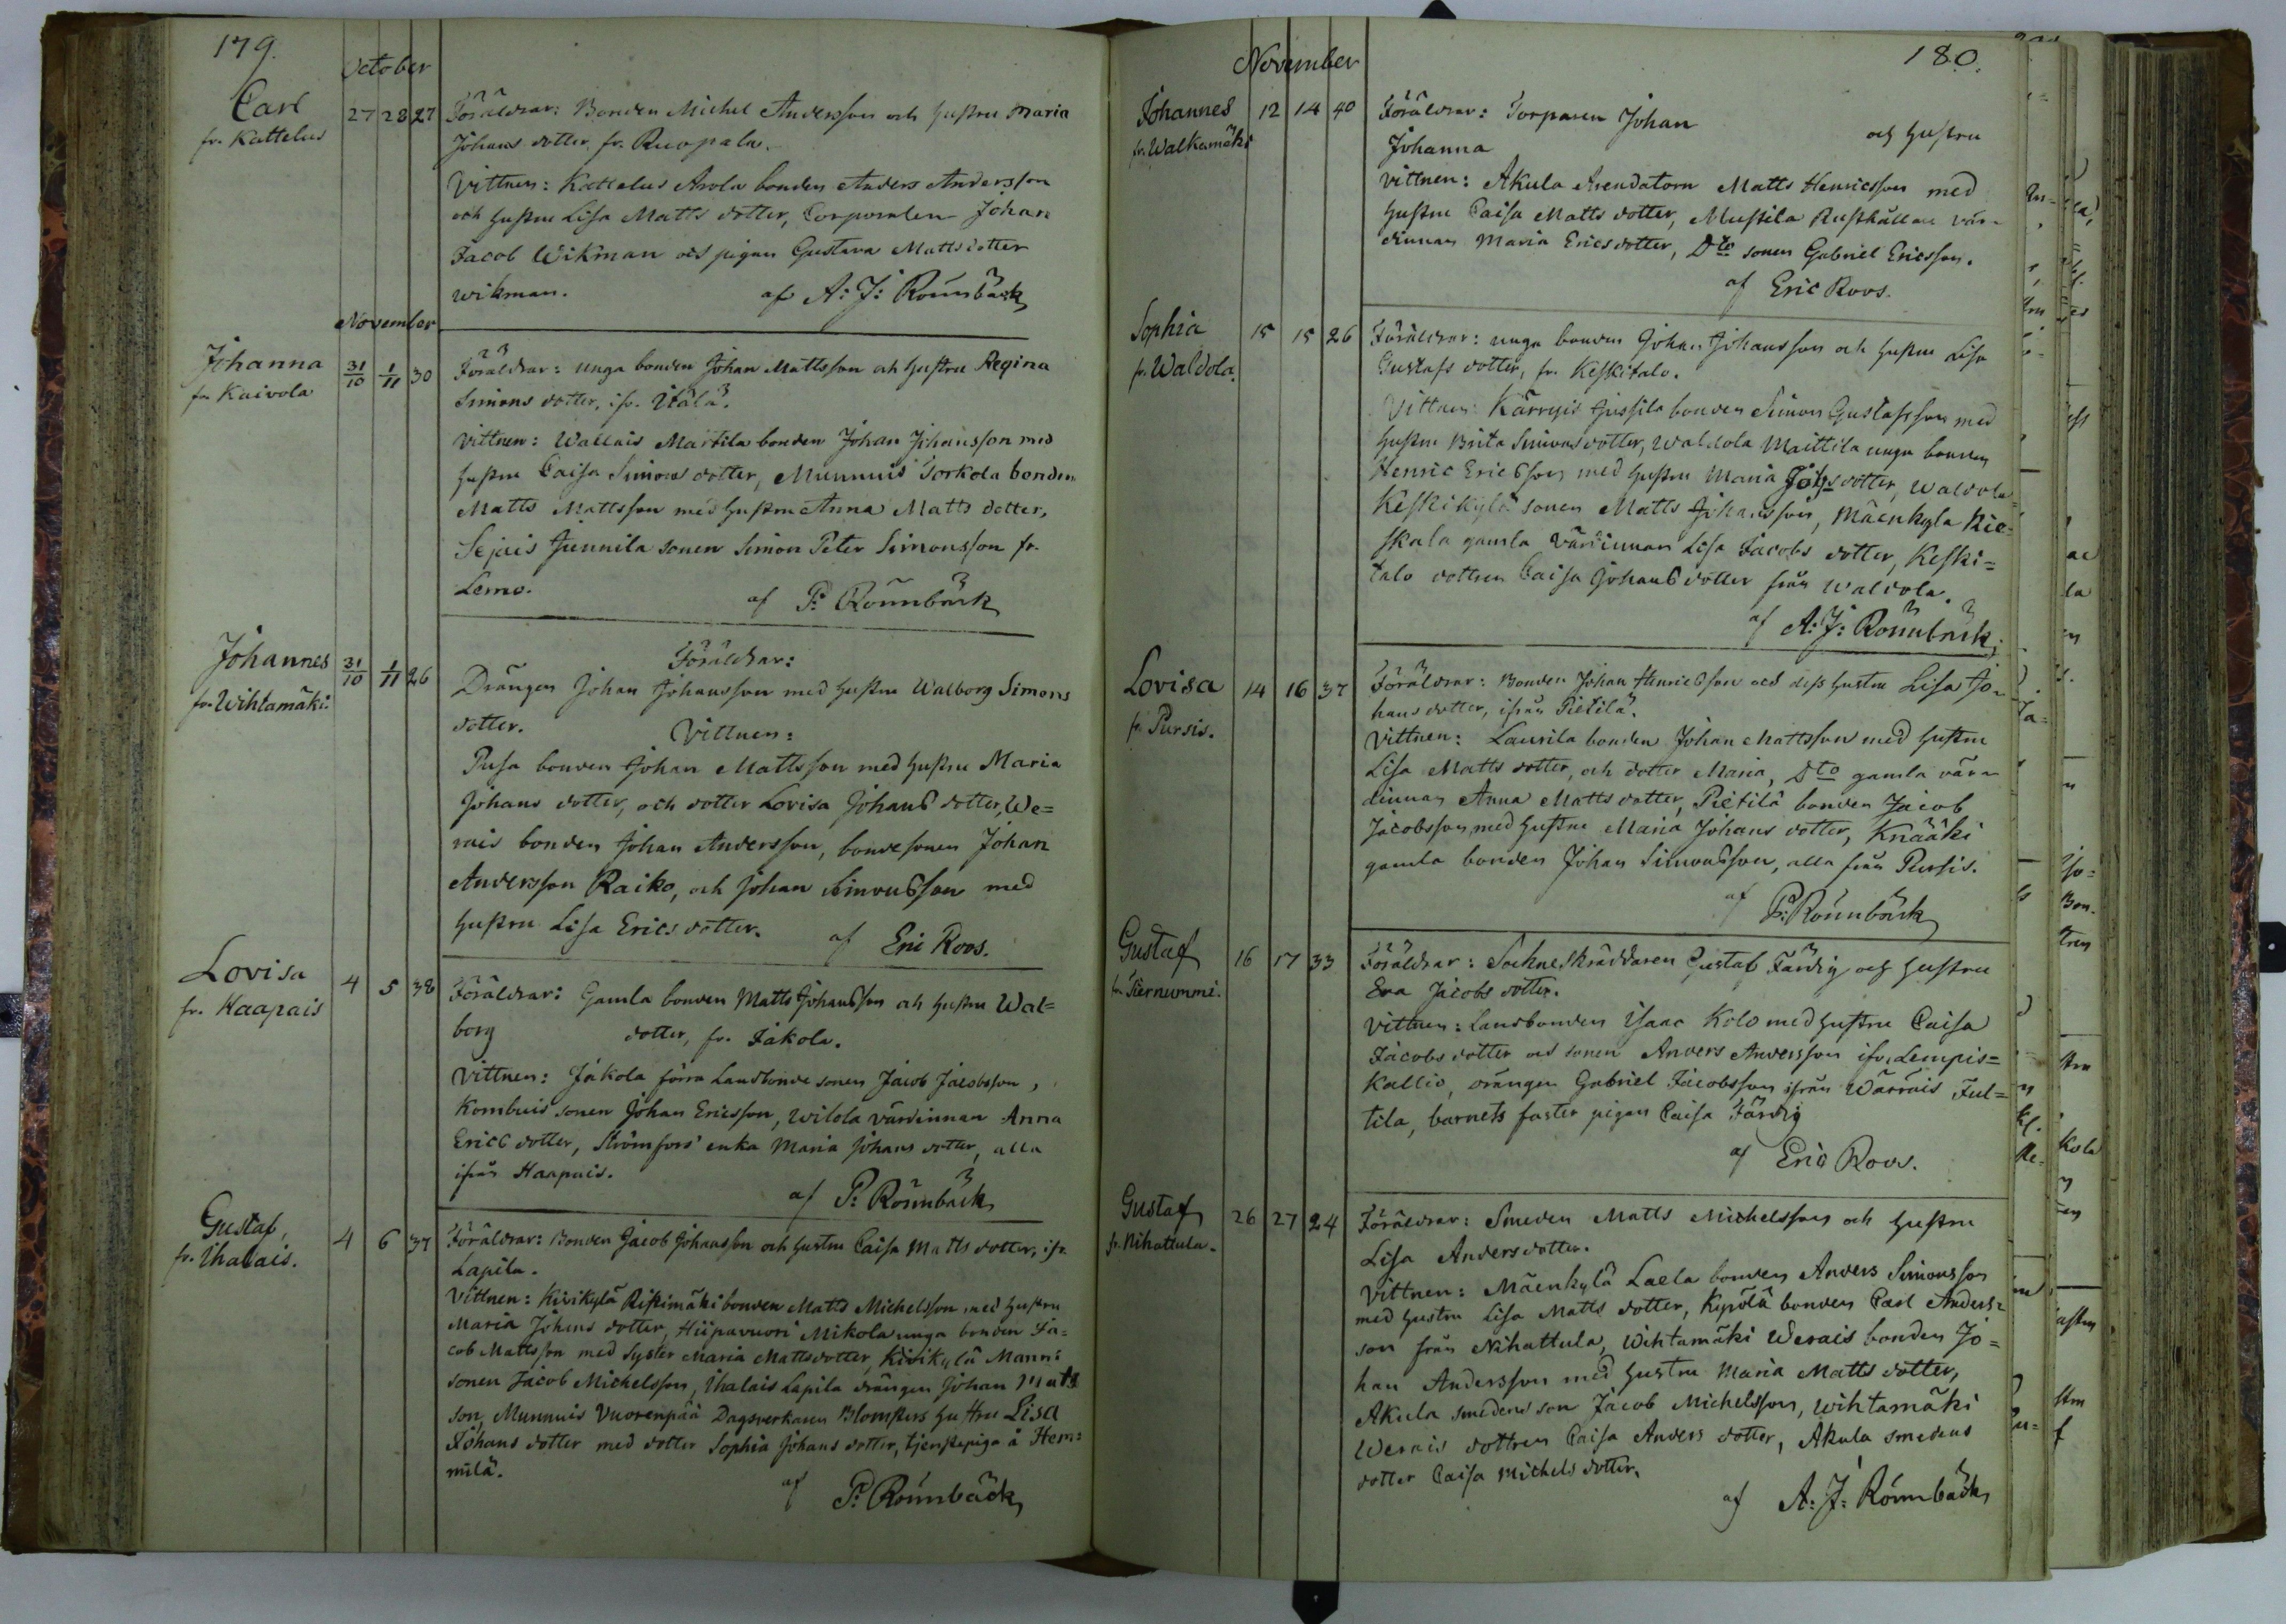 179.
October
Carl
fr. Kattelus
27 28 27
Föräldrar: Bonden Michel Andersson och hustru Maria
Johans dotter fr. Ruopala.
Vittnen: Kattelus Arola bonden Anders Andersson
och hustru Lisa Matts dotter, Corporalen Johan
Jacob Wikman och pigan Gustava Matts dotter
Wikman. af A: J: Rönnbäck
November
Johanna
fr. Kaivola
31/10 1/11 30
Föräldrar: unga bonden Johan Mattsson och hustru Regina
Simons dotter, ifr. Itälä.
Vittnen: Wallais Martila bonden Johan Johansson med
hustru Caisa Simons dotter, Munnuis Torkola bonden
Matts Mattsson med hustru Anna Matts dotter,
Sejais Junnila sonen Simon Peter Simonsson fr.
Lemo. af P: Rönnbäck
Johannes
fr. Wihtamäki
31/10 1/11 26
Föräldrar:
Drängen Johan Johansson med hustru Walborg Simons
dotter. Vittnen:
Pusa bonden Johan Mattsson med hustru Maria
Johans dotter, och dotter Lovisa Johans dotter, We=
rais bonden Johan Andersson, bondesonen Johan
Andersson Raiko, och Johan Simonsson med
hustru Lisa Erics dotter. af Eric Roos.
Lovisa
fr. Haapais
4 5 38
Föräldrar: Gamla bonden Matts Johansson och hustru Wal=
borg dotter, fr. Jakola.
Vittnen: Jakola förra Landbonde sonen Jacob Jacobsson,
Kombuis sonen Johan Ericsson, Wilola värdinnan Anna
Erics dotter, Strömfors enka Maria Johans dotter, alla
ifrån Haapais.
af P: Rönnbäck
Gustaf,
fr. Ihalais.
4 6 37
Föräldrar: Bonden Jacob Johansson och hustru Caisa Matts dotter, ifr.
Lapila.
Vittnen: Kivikylä Ristimäki bonden Matts Michelsson med hustru
Maria Johans dotter, Hiipavuori Mikola unga bonden Ja=
cob Mattsson med Syster Maria Mattsdotter, Kivikylä Manni
sonen Jacob Michelsson, Ihalais Lapila drängen Johan Matts
son, Munnuis Vuorenpää Dagsverkaren Blomsters hustru Lisa
Johans dotter med dotter Sophia Johans dotter, tjenstepiga å Hem=
milä. af P: Rönnbäck
November
180.
Johannes
fr. Walkamäki
12 14 40
Föräldrar: Torparen Johan och hustru
Johanna
Vittnen: Akula Arendatorn Matts Henricsson med
hustru Caisa Matts dotter, Mustila Rusthållare vär=
dinnan Maria Ericsdotter, Dto sonen Gabriel Ericsson.
af Eric Roos.
Sophia
fr. Waldola.
15 15 26
Föräldrar: unga bonden Johan Johansson och hustru Lisa
Gustafs dotter, fr. Keskitalo.
Vittnen: Kärryis Jussila bonden Simon Gustafsson med
hustru Brita Simons dotter, Waldola Maittila unga bonden
Henric Ericsson med hustru Maria Johs dotter, Waldola
Keskikylä sonen Matts Johansson, Mäenkylä Rie=
skala gamla värdinnan Lisa Jacobs dotter, Keski=
talo dottren Caisa Johans dotter från Waldola.
af A: J: Rönnbäck
Lovisa
fr. Pursis.
14 16 37
Föräldrar: Bonden Johan Henricsson och dess hustru Lisa Jo=
hans dotter, ifrån Pietilä.
Vittnen: Laurila bonden Johan Mattsson med hustru
Lisa Matts dotter, och dotter Maria, Dto gamla vär=
dinnan Anna Matts dotter, Pietilä bonden Jacob
Jacobsson med hustru Maria Johans dotter, Knääki
gamla bonden Johan Simonsson, alla från Pursis.
af P: Rönnbäck
Gustaf
fr. Niernummi.
16 17 33
Föräldrar: Sockneskräddaren Gustaf Färdig och hustru
Eva Jacobs dotter.
Vittnen: Landbonden Isaac Kolo med hustru Caisa
Jacobs dotter och sonen Anders Andersson ifr. Lempis=
kallio, drängen Gabriel Jacobsson ifrån Wärräis Jut=
tila, barnets faster pigan Caisa Färdig
af Eric Roos.
Gustaf
fr. Nihattula.
26 27 24
Föräldrar: Smeden Matts Michelsson och hustru
Lisa Andersdotter.
Vittnen: Mäenkylä Laela bonden Anders Simonsson
med hustru Lisa Matts dotter, Kypölä bonden Carl Anders=
son från Nihattula, Wihtamäki Werais bonden Jo=
han Andersson med hustru Maria Matts dotter,
Akula smedens son Jacob Michelsson, Wihtamäki
Werais dottren Caisa Anders dotter, Akula smedens
dotter Caisa Michels dotter.
af A: J: Rönnbäck